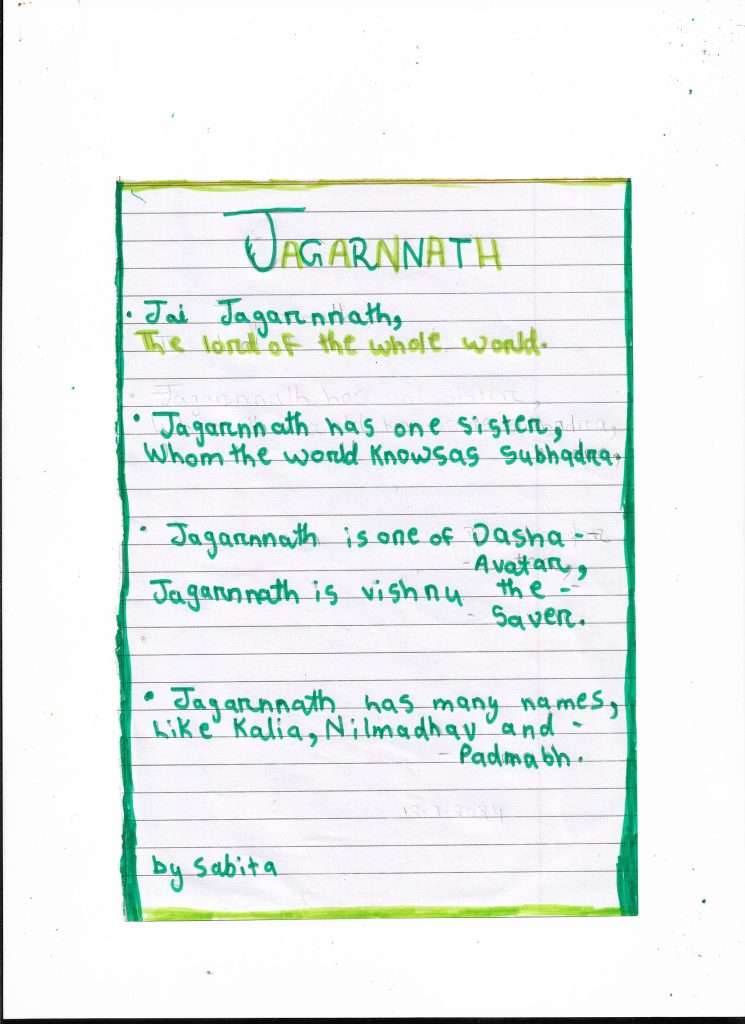 JAGARNNATH
• Jai Jagarnnath,
The lord of the whole world.
• Jagarnnath has one sister,
Whom the world Knowsas Subhadra.
• Jagarnnath is one of Dasha -
- Avatar,
Jagarnnath is vishnu the -
- Saver.
• Jagarnnath has many names,
Like Kalia, Nilmadhav and -
- Padmabh.
by Sabita